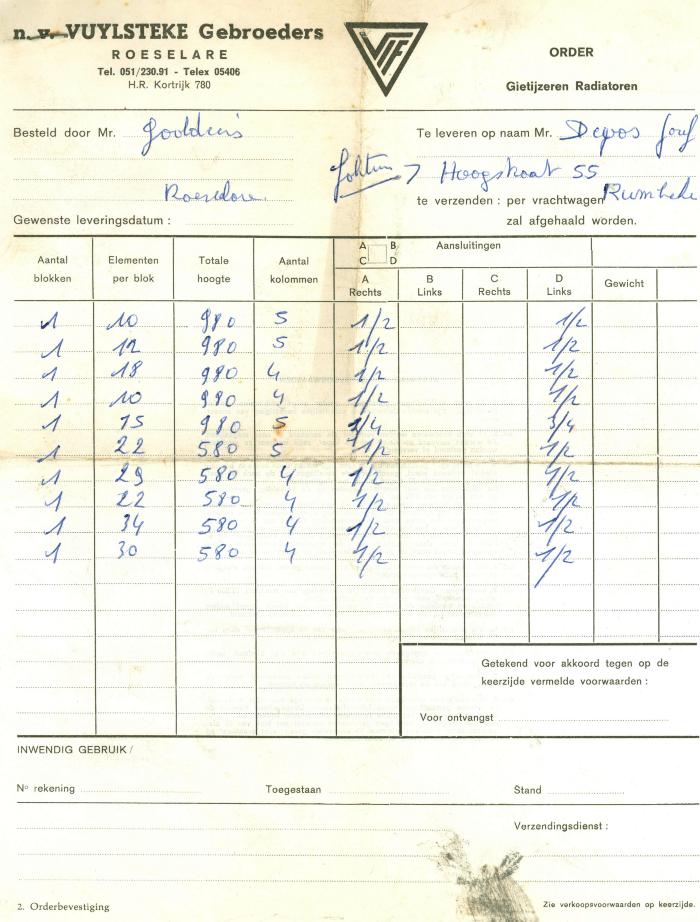 n. v. VUYLSTEKE Gebroeders
ROESELARE
Tel. 051/230.91 - Telex 05406
H.R. Kortrijk 780
VTF
ORDER
Gietijzeren Radiatoren
Besteld door Mr.
Te leveren op naam Mr. Devos Jozef
Hoogstraat 55
Roeselare
te verzenden : per vrachtwagen Rumbeke
Gewenste leveringsdatum :
zal afgehaald worden.
Aantal blokken Elementen per blok Totale hoogte Aantal kolommen A B C D Aansluitingen
A Rechts B Links C Rechts D Links Gewicht
1 10 980 5 1/2 1/2
1 12 980 5 1/2 1/2
1 18 980 4 1/2 1/2
1 10 980 4 1/2 1/2
1 15 980 5 3/4 3/4
1 22 580 5 1/2 1/2
1 29 580 4 1/2 1/2
1 22 580 4 1/2 1/2
1 34 580 4 1/2 1/2
1 30 580 4 1/2 1/2
Getekend voor akkoord tegen op de
keerzijde vermelde voorwaarden :
Voor ontvangst
INWENDIG GEBRUIK /
No rekening Toegestaan Stand
Verzendingsdienst :
2. Orderbevestiging
Zie verkoopsvoorwaarden op keerzijde.